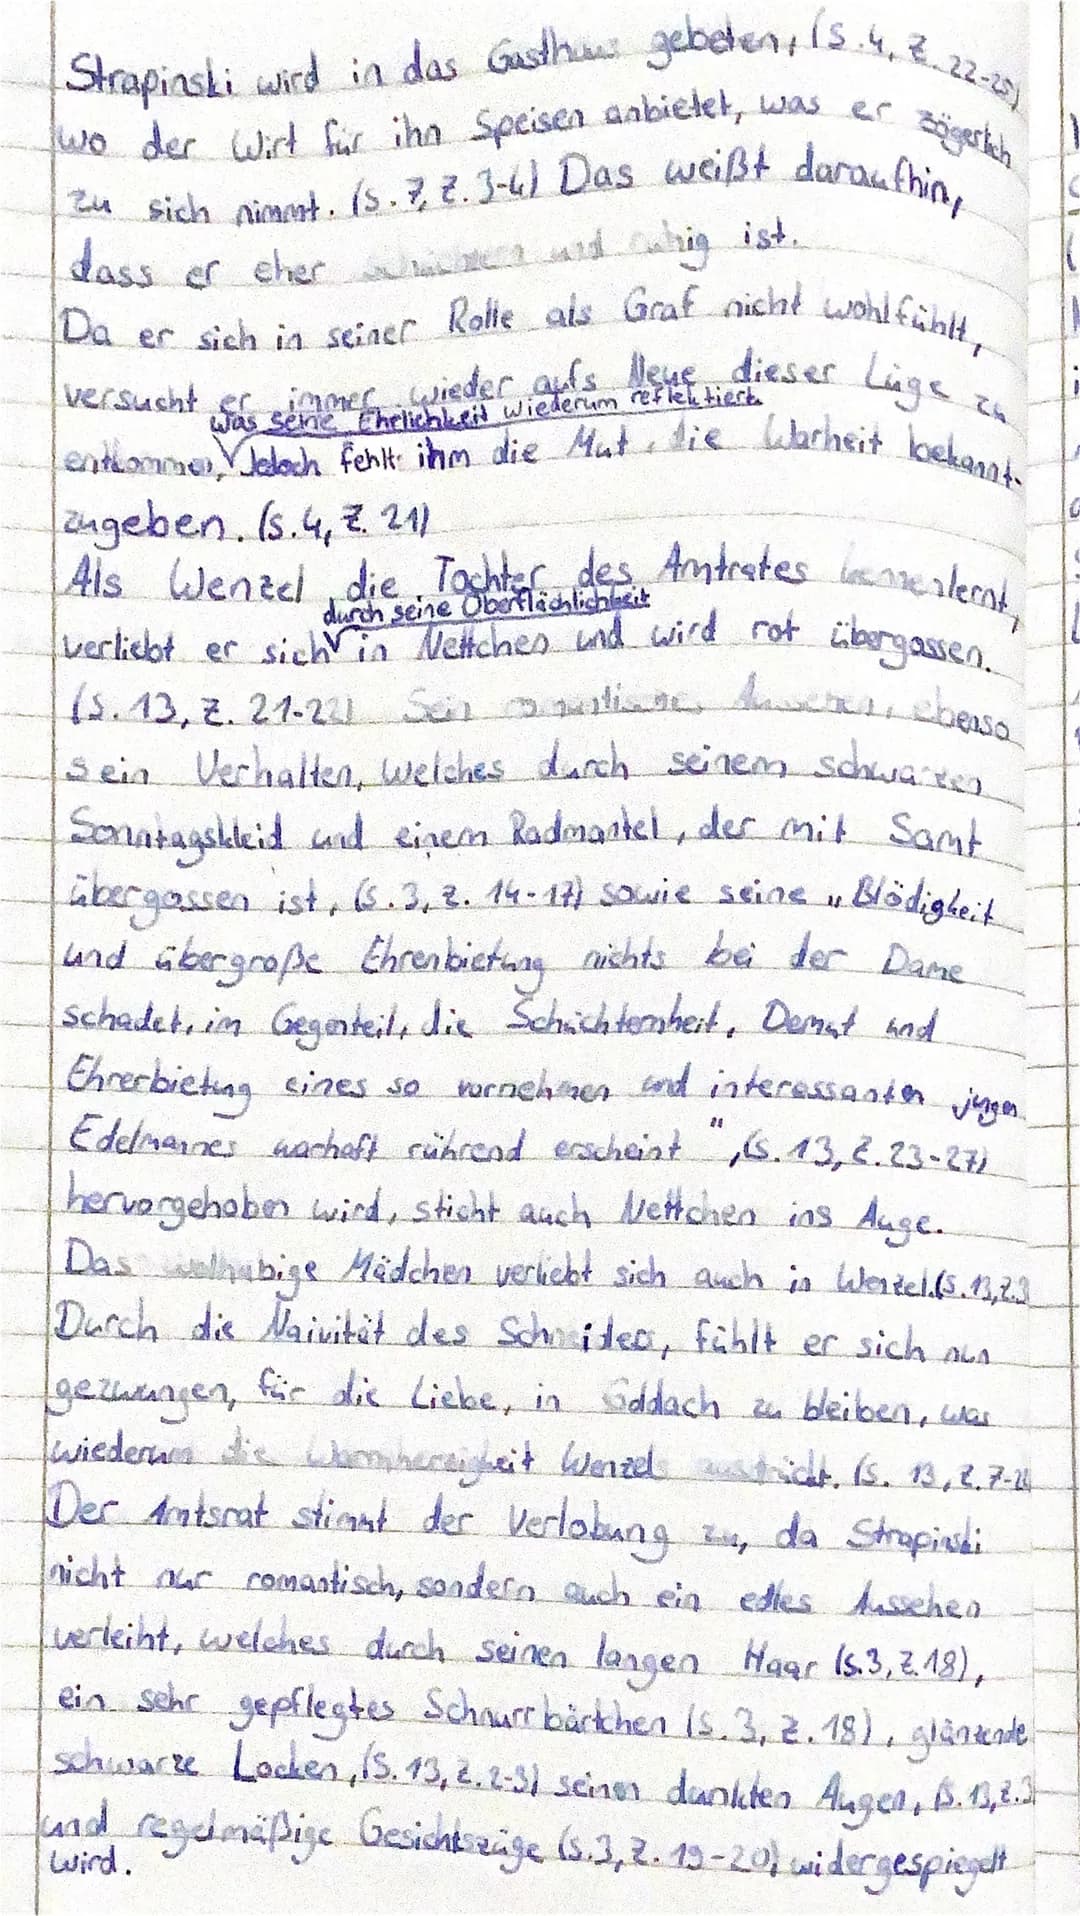 Strapinski wird in das Gasthaus gebeten, (S.4, Z.22-25)
wo der Wirt für ihn Speisen anbietet, was er zögerlich
zu sich nimmt. (S.7, Z.3-4) Das weißt daraufhin,
dass er eher schüchtern und ruhig ist.
Da er sich in seiner Rolle als Graf nicht wohlfühlt,
versucht er immer wieder aufs Neue dieser Lüge zu
was seine Ehrlichkeit wiederum reflektiert
entkommen, Jedoch fehlt ihm die Mut, die Warheit bekannt-
zugeben. (S.4, Z. 21)
Als Wenzel die Tochter des Amtrates kennenlernt,
durch seine Oberflächlichkeit
verliebt er sich in Nettchen und wird rot übergossen.
(S. 13, Z. 21-22) Sein romantisches Aussehen, ebenso
sein Verhalten, welches durch seinem schwarzen
Sonntagskleid und einem Radmantel, der mit Samt
übergossen ist, (S.3, Z. 14-17) sowie seine „Blödigkeit
und übergroße Ehrenbietung nichts bei der Dame
schadet, im Gegenteil, die Schüchternheit, Demut und
Ehrerbietung eines so vornehmen und interessanten jungen
Edelmannes warhaft rührend erscheint", (S. 13, Z. 23-27)
hervorgehoben wird, sticht auch Nettchen ins Auge.
Das wolhabige Mädchen verliebt sich auch in Wenzel. (S. 13, Z.3
Durch die Naivität des Schneiders, fühlt er sich nun
gezwungen, für die Liebe, in Goldach zu bleiben, was
wiederum die Warmherzigkeit Wenzels ausdrückt. (S. 13, Z. 7-
Der Amtsrat stimmt der Verlobung zu, da Strapinski
nicht nur romantisch, sondern auch ein edles Aussehen
verleiht, welches durch seinen langen Haar (S.3, Z.18),
ein sehr gepflegtes Schnurrbärtchen (S. 3, Z. 18), glänzende
schwarze Locken, (S. 13, Z. 2-3) seinen dunklen Augen, (S. 13, Z.3
und regelmäßige Gesichtszüge (S.3, Z. 19-20) widergespiegelt
wird.